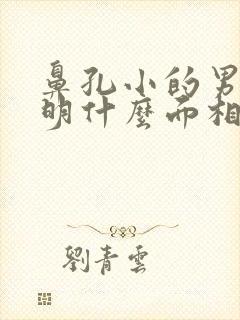 鼻孔小的男
明什麼面相
劉青雲